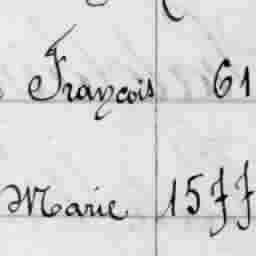 François 61
Marie 15 f f